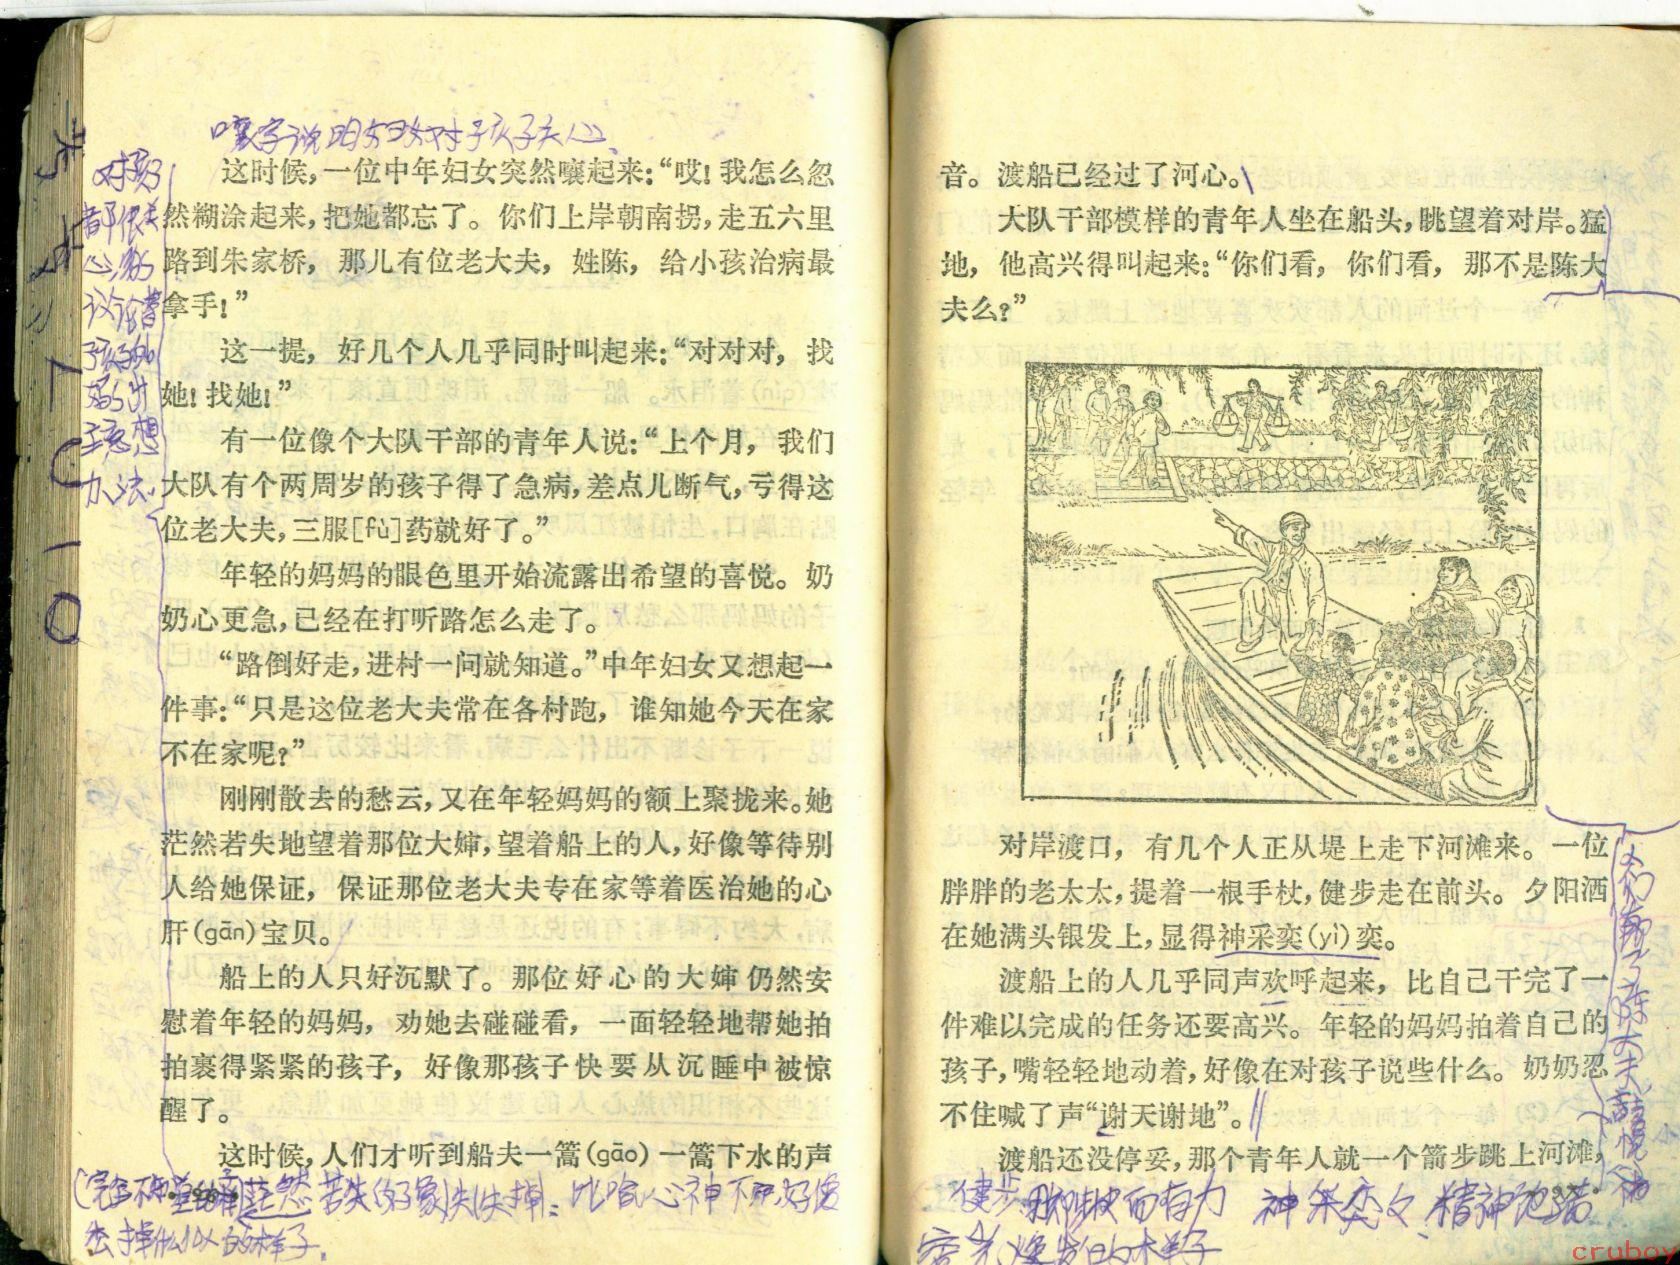 嚷字说明妇女对孩子关心。
这时候，一位中年妇女突然嚷起来：“哎！我怎么忽
然糊涂起来，把她都忘了。你们上岸朝南拐，走五六里
路到朱家桥，那儿有位老大夫，姓陈，给小孩治病最
拿手！”
这一提，好几个人几乎同时叫起来：“对对对，找
她！找她！”
有一位像个大队干部的青年人说：“上个月，我们
大队有个两周岁的孩子得了急病，差点儿断气，亏得这
位老大夫，三服[fù]药就好了。”
年轻的妈妈的眼色里开始流露出希望的喜悦。奶
奶心更急，已经在打听路怎么走了。
“路倒好走，进村一问就知道。”中年妇女又想起一
件事：“只是这位老大夫常在各村跑，谁知她今天在家
不在家呢？”
刚刚散去的愁云，又在年轻妈妈的额上聚拢来。她
茫然若失地望着那位大婶，望着船上的人，好像等待别
人给她保证，保证那位老大夫专在家等着医治她的心
肝(gān)宝贝。
船上的人只好沉默了。那位好心的大婶仍然安
慰着年轻的妈妈，劝她去碰碰看，一面轻轻地帮她拍
拍裹得紧紧的孩子，好像那孩子快要从沉睡中被惊
醒了。
这时候，人们才听到船夫一篙(gāo)一篙下水的声
音。渡船已经过了河心。
大队干部模样的青年人坐在船头，眺望着对岸。猛
地，他高兴得叫起来：“你们看，你们看，那不是陈大
夫么？”
对岸渡口，有几个人正从堤上走下河滩来。一位
胖胖的老太太，提着一根手杖，健步走在前头。夕阳洒
在她满头银发上，显得神采奕(yì)奕。
渡船上的人几乎同声欢呼起来，比自己干完了一
件难以完成的任务还要高兴。年轻的妈妈拍着自己的
孩子，嘴轻轻地动着，好像在对孩子说些什么。奶奶忍
不住喊了声“谢天谢地”。
渡船还没停妥，那个青年人就一个箭步跳上河滩，
健步 脚步快而有力 神采奕々 精神饱满
容光焕发的样子
cruboy